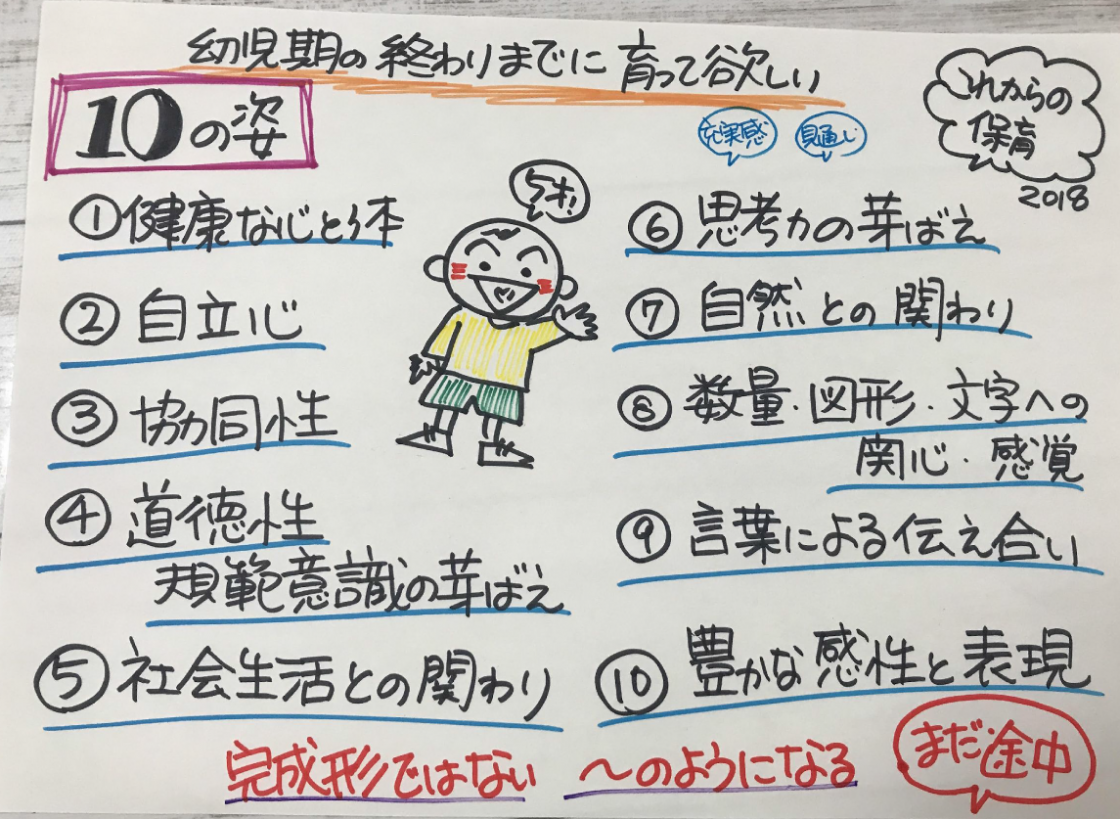 幼児期の終わりまでに育って欲しい
10の姿
充実感
見通し
これからの
保育
2018
5才!
①健康な心と体
②自立心
③協同性
④道徳性
規範意識の芽ばえ
⑤社会生活との関わり
⑥思考力の芽ばえ
⑦自然との関わり
⑧数量・図形・文字への
関心・感覚
⑨言葉による伝え合い
⑩豊かな感性と表現
完成形ではない 〜のようになる
まだ途中